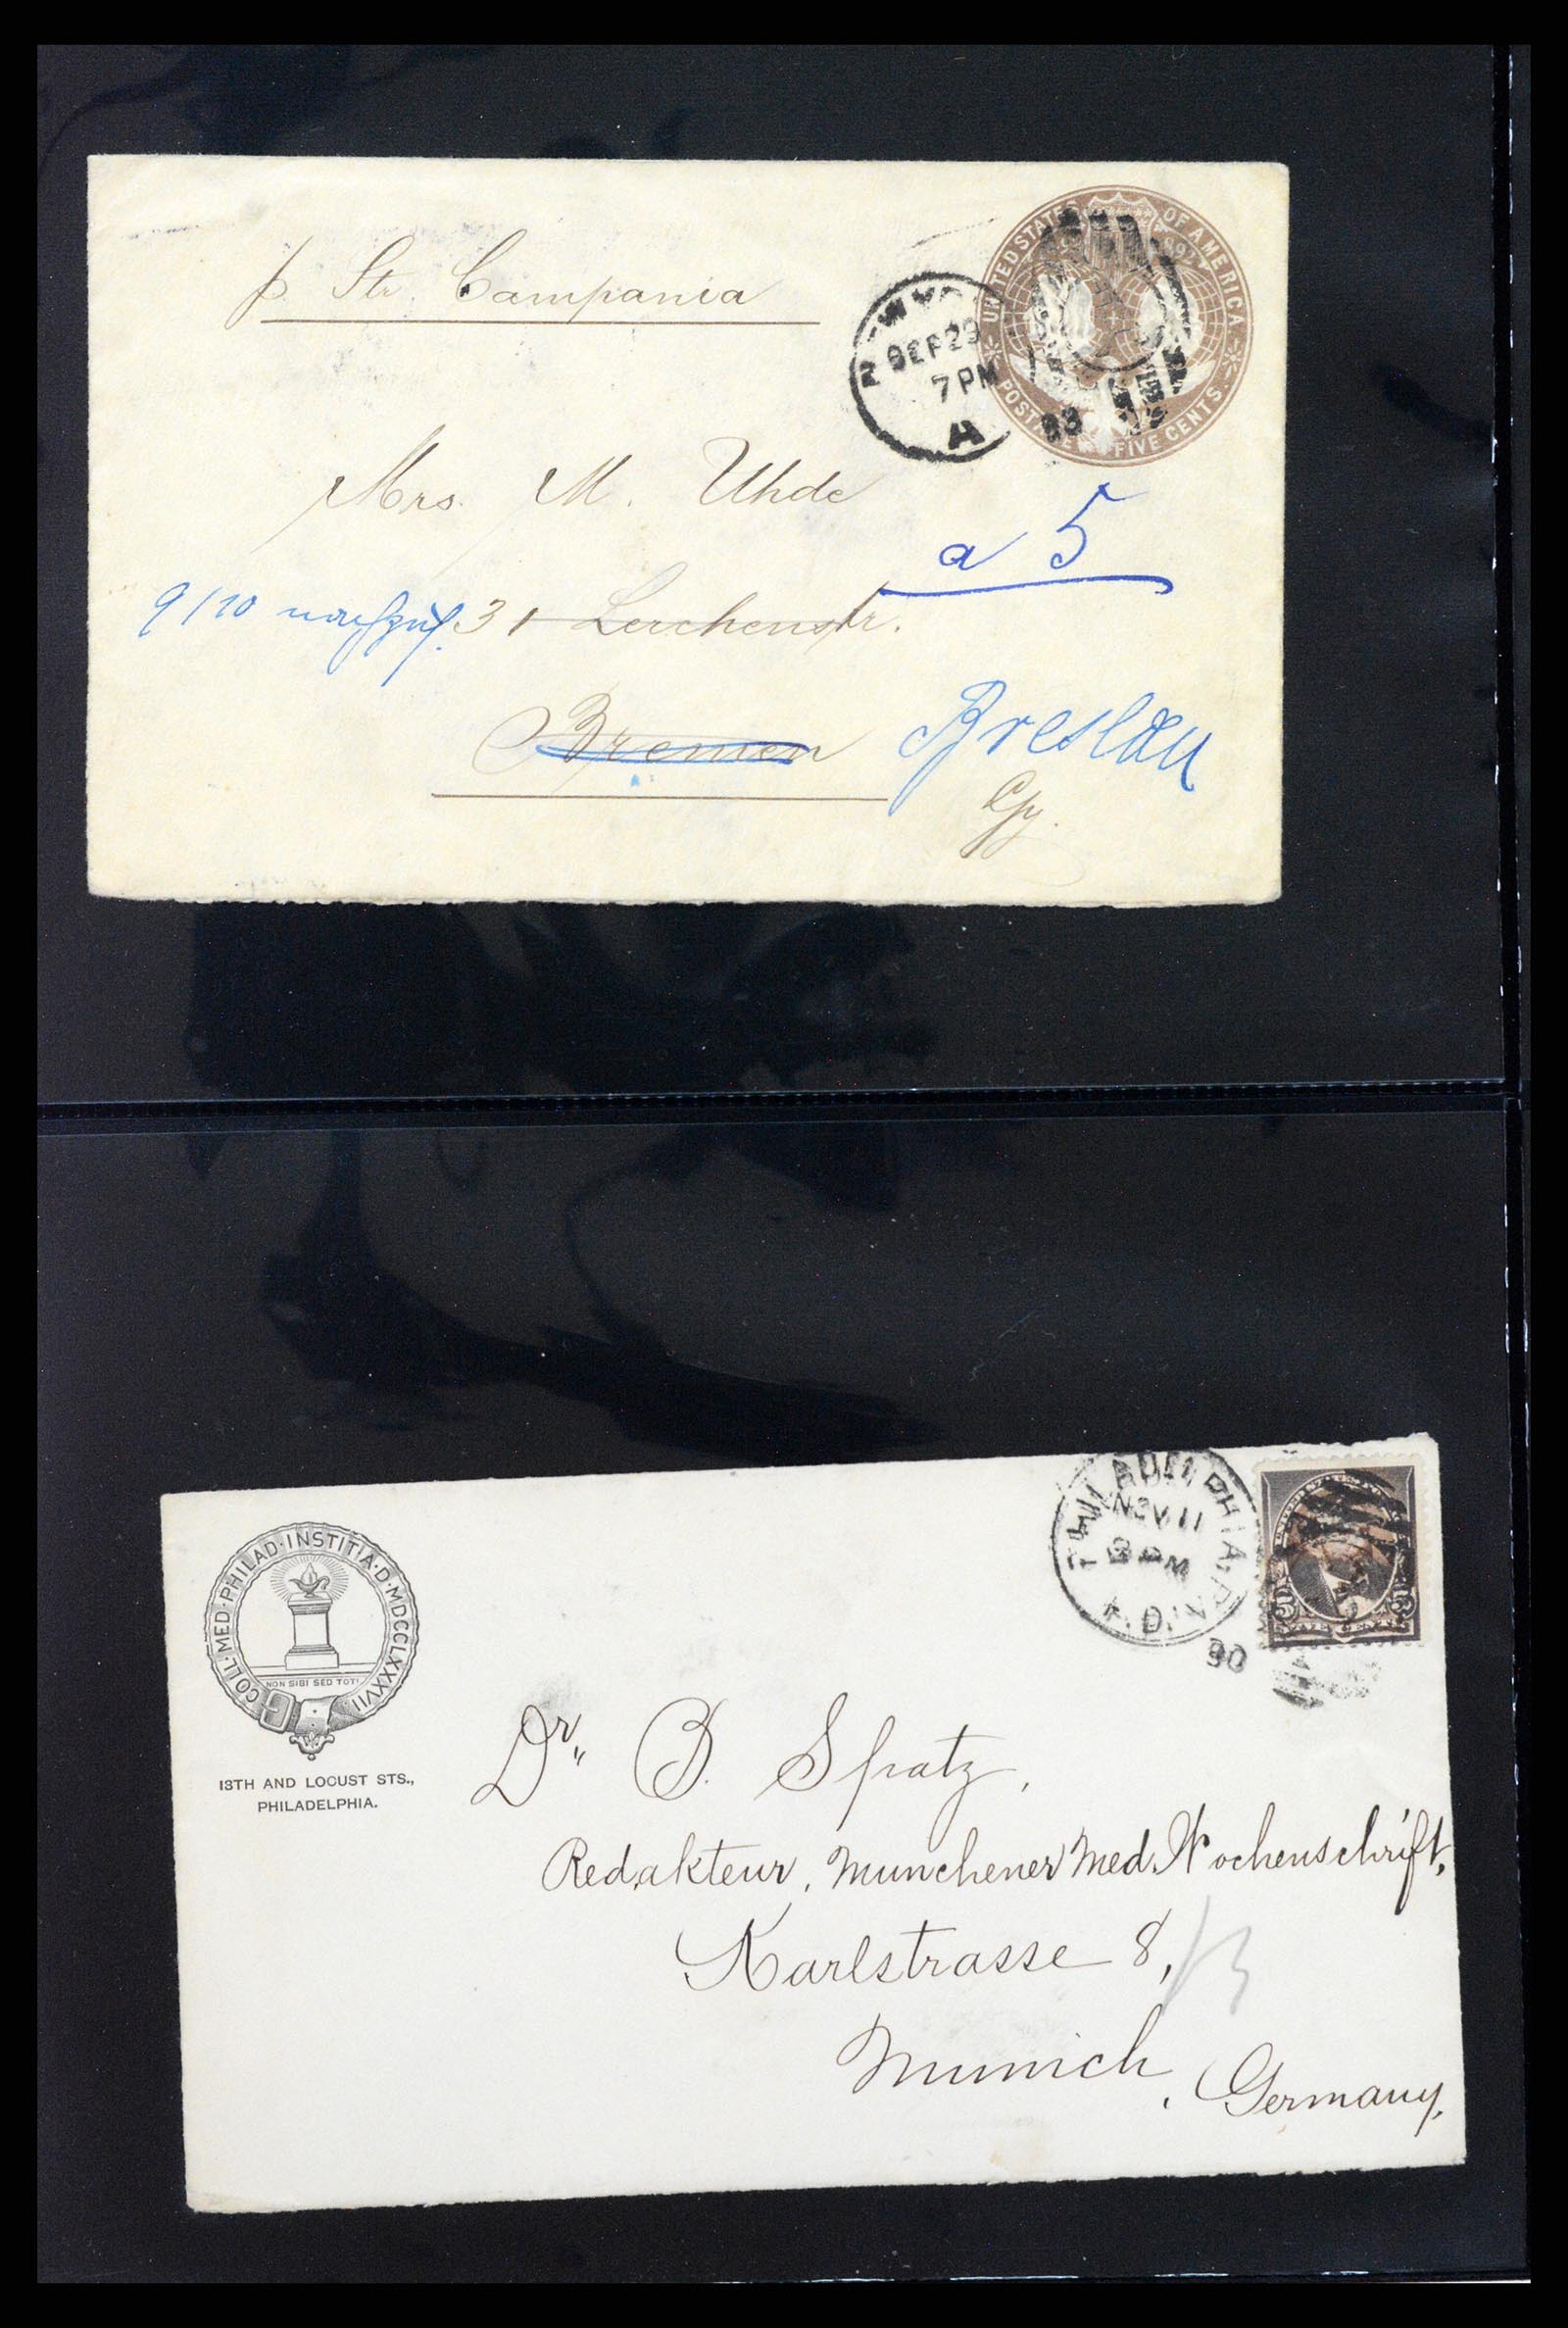 p. Str. Campania
UNITED STATES OF AMERICA
POSTAGE FIVE CENTS
NEW YO
SEP 29
7 PM
A
93
Mrs. M. Uhde
a 5
9/10 31 Lerchenstr.
Bremen Breslau
Gy.
COLL·MED·PHILAD·INSTITIA·D·MDCCLXXXVII
NON SIBI SED TOTI
13TH AND LOCUST STS.,
PHILADELPHIA.
PHILADELPHIA, PA.
NOV 11
PM
90
5 5
Dr. B. Spatz,
Redakteur, Munchener Med. Wochenschrift,
Karlstrasse 8,
Munich, Germany.